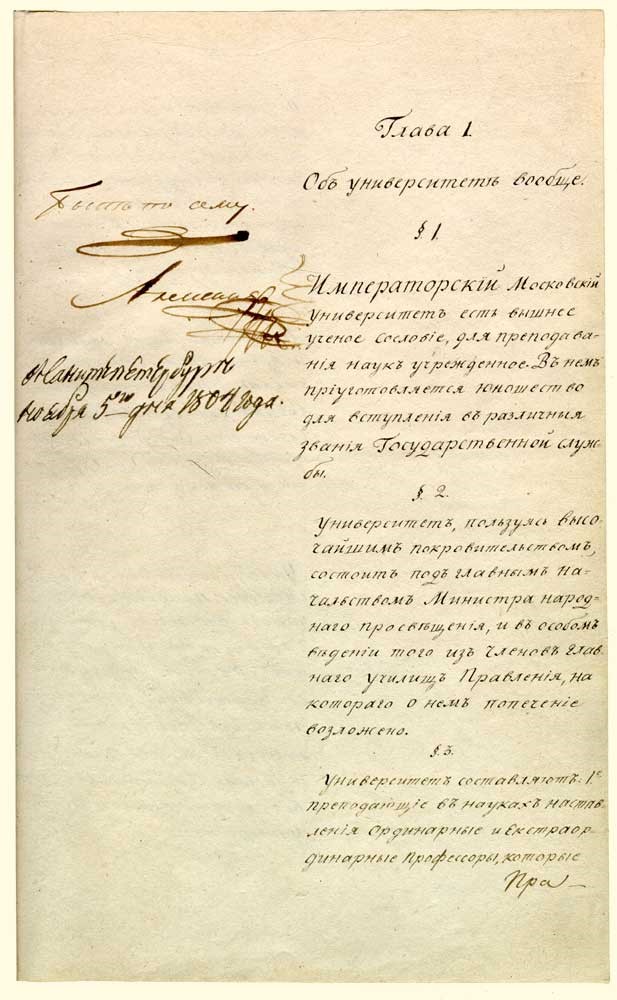 Глава I.
Объ университетѣ вообще.
§. 1.
Быть по сему.
Александръ
Санктпетербургъ
ноября 5го дня 1804 года.
Императорскій Московскій
университетъ есть вышнее
ученое сословіе, для преподава-
нія наукъ учрежденное. Въ немъ
пріуготовляется юношество
для вступленія въ различныя
званія Государственной служ-
бы.
§. 2.
Университетъ, пользуясь высо-
чайшимъ покровительствомъ,
состоитъ подъ главнымъ на-
чальствомъ Министра народ-
наго просвѣщенія, и въ особомъ
вѣденіи того изъ членовъ глав-
наго училищъ Правленія, на
котораго о немъ попеченіе
возложено.
§. 3.
Университетъ составляютъ: 1е
преподающіе въ наукахъ настав-
ленія Ординарные и Екстраор-
динарные Профессоры, которые
Пра-